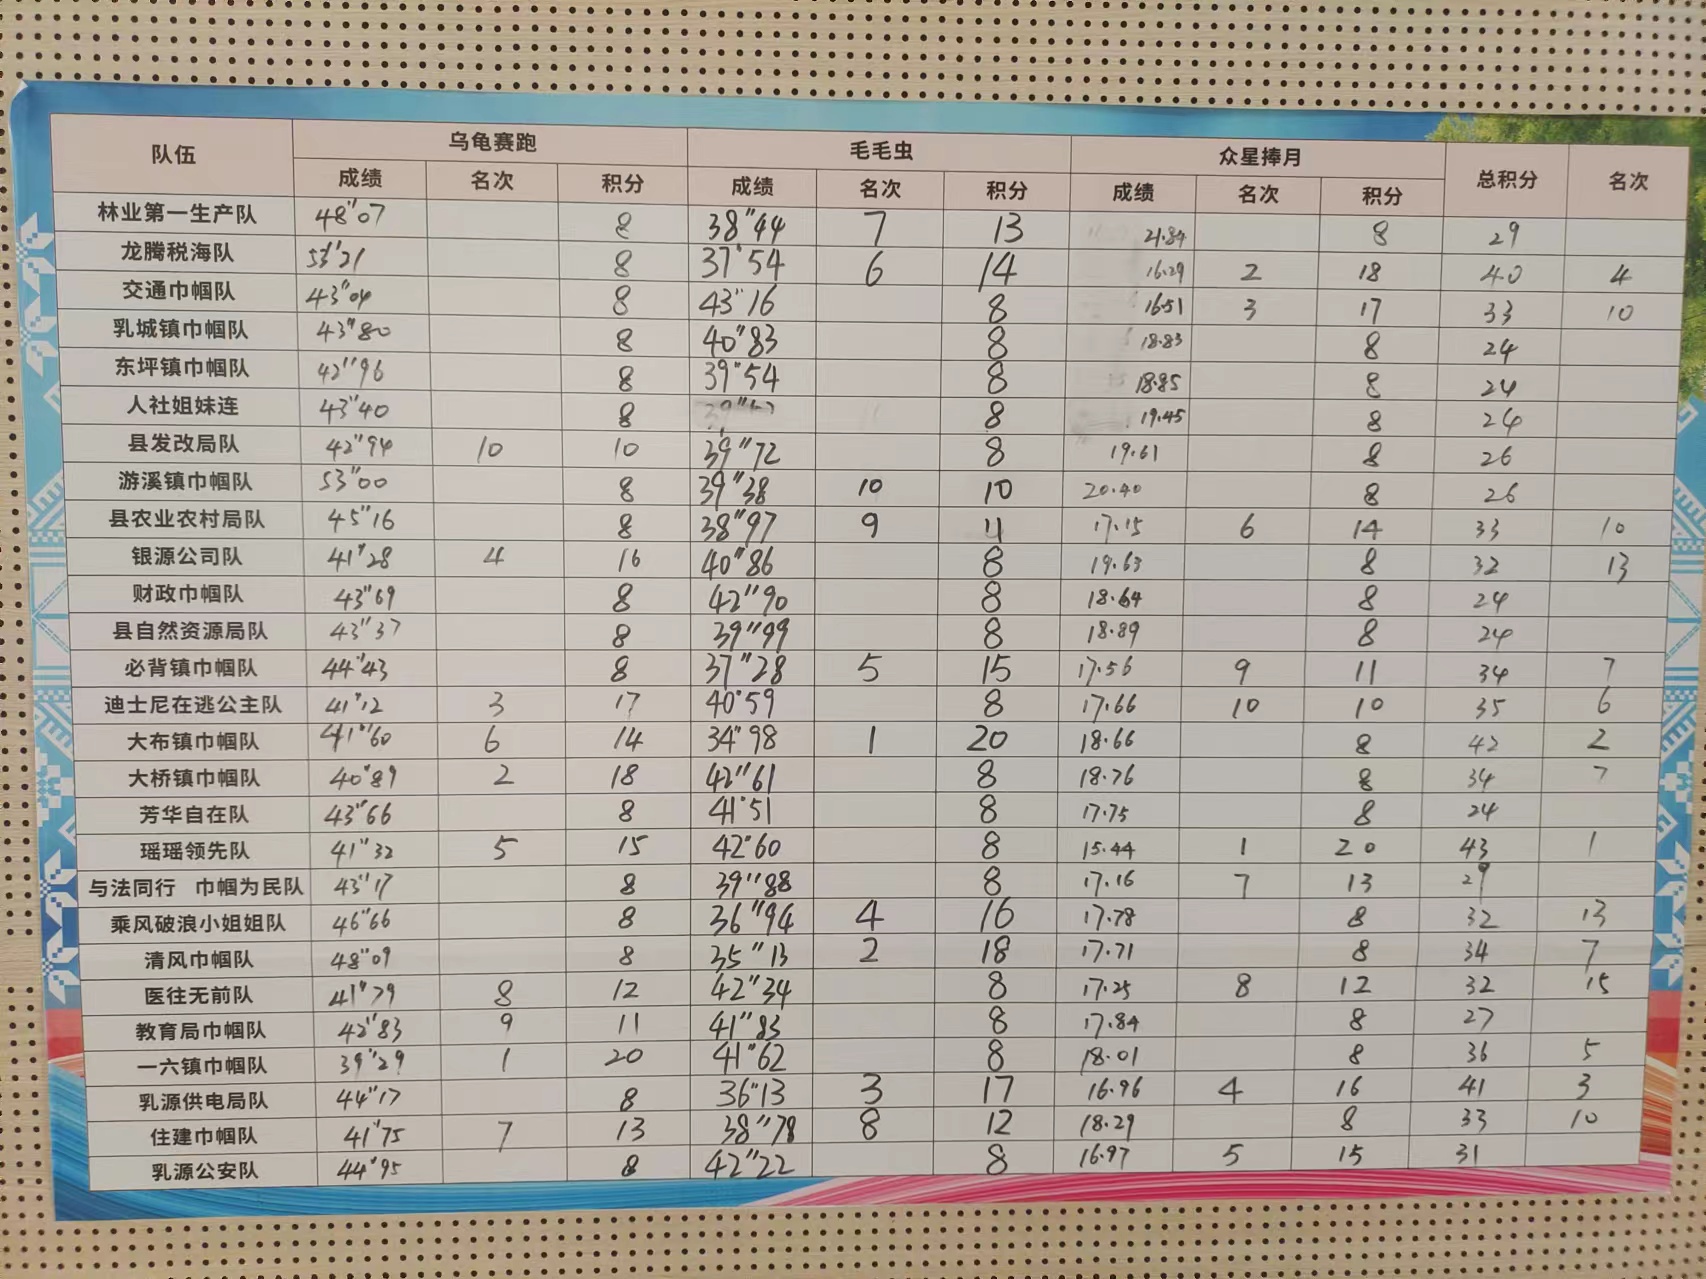 队伍 乌龟赛跑 毛毛虫 众星捧月 总积分 名次
成绩 名次 积分 成绩 名次 积分 成绩 名次 积分
林业第一生产队 48"07 8 38"44 7 13 21.84 8 29
龙腾税海队 53"21 8 37"54 6 14 16.29 2 18 40 4
交通巾帼队 43"04 8 43"16 8 16.51 3 17 33 10
乳城镇巾帼队 43"80 8 40"83 8 18.83 8 24
东坪镇巾帼队 42"96 8 39"54 8 18.85 8 24
人社姐妹连 43"40 8 8 19.45 8 24
县发改局队 42"94 10 10 39"72 8 19.61 8 26
游溪镇巾帼队 53"00 8 39"38 10 10 20.40 8 26
县农业农村局队 45"16 8 38"97 9 11 17.15 6 14 33 10
银源公司队 41"28 4 16 40"86 8 19.63 8 32 13
财政巾帼队 43"69 8 42"90 8 18.64 8 24
县自然资源局队 43"37 8 39"99 8 18.89 8 24
必背镇巾帼队 44"43 8 37"28 5 15 17.56 9 11 34 7
迪士尼在逃公主队 41"12 3 17 40"59 8 17.66 10 10 35 6
大布镇巾帼队 41"60 6 14 34"98 1 20 18.66 8 42 2
大桥镇巾帼队 40"89 2 18 42"61 8 18.76 8 34 7
芳华自在队 43"66 8 41"51 8 17.75 8 24
瑶瑶领先队 41"32 5 15 42"60 8 15.44 1 20 43 1
与法同行 巾帼为民队 43"17 8 39"88 8 17.16 7 13 29
乘风破浪小姐姐队 46"66 8 36"94 4 16 17.78 8 32 13
清风巾帼队 48"09 8 35"13 2 18 17.71 8 34 7
医往无前队 41"79 8 12 42"34 8 17.25 8 12 32 15
教育局巾帼队 42"83 9 11 41"83 8 17.84 8 27
一六镇巾帼队 39"29 1 20 41"62 8 18.01 8 36 5
乳源供电局队 44"17 8 36"13 3 17 16.96 4 16 41 3
住建巾帼队 41"75 7 13 38"78 8 12 18.29 8 33 10
乳源公安队 44"95 8 42"22 8 16.97 5 15 31